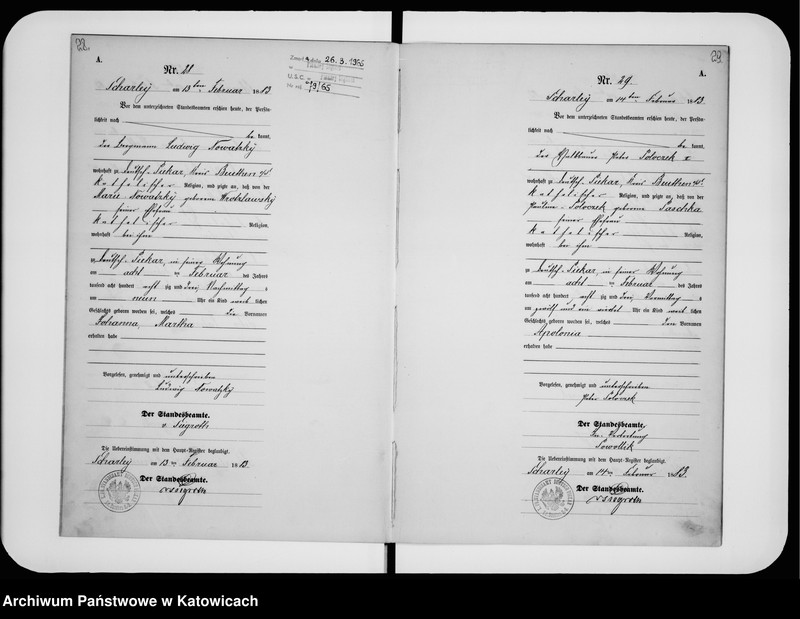 22.
A.
Nr. 21
Scharley am 13ten Februar 1883.
Vor dem unterzeichneten Standesbeamten erschien heute, der Persön-
lichkeit nach
be kannt,
der Bergmann Ludwig Nowatzky
wohnhaft zu Deutsch-Piekar, Kreis Beuthen
katholischer Religion, und zeigte an, daß von der
Marie Nowatzky geborene Wrotslawsky
seiner Ehefrau
katholischer Religion,
wohnhaft bei ihm
zu Deutsch-Piekar, in seiner Wohnung
am acht ten Februar des Jahres
tausend acht hundert acht zig und drei, Nachmittag s
um neun Uhr ein Kind weib lichen
Geschlechts geboren worden sei, welches die Vornamen
Johanna, Martha
erhalten habe
Vorgelesen, genehmigt und unterschrieben
Ludwig Nowatzky
Der Standesbeamte.
v. Sagroth
Die Uebereinstimmung mit dem Haupt-Register beglaubigt.
Scharley am 13ten Februar 1883.
Der Standesbeamte.
26.3.1966
U.S.C.
19/65
29
A.
Nr. 29.
Scharley am 14ten Februar 1883.
Vor dem unterzeichneten Standesbeamten erschien heute, der Persön-
lichkeit nach
be kannt,
der Peter Poloczek
wohnhaft zu Deutsch-Piekar, Kreis Beuthen
katholischer Religion, und zeigte an, daß von der
Pauline Poloczek geborene Paschka
seiner Ehefrau
katholischer Religion,
wohnhaft bei ihm
zu Deutsch-Piekar, in seiner Wohnung
am acht ten Februar des Jahres
tausend acht hundert acht zig und drei, Vormittag s
um zwölf und ein viertel Uhr ein Kind weib lichen
Geschlechts geboren worden sei, welches den Vornamen
Apolonia
erhalten habe
Vorgelesen, genehmigt und unterschrieben
Peter Poloczek
Der Standesbeamte,
In Vertretung
Die Uebereinstimmung mit dem Haupt-Register beglaubigt.
Scharley am 14ten Februar 1883.
Der Standesbeamte.
Archiwum Państwowe w Katowicach